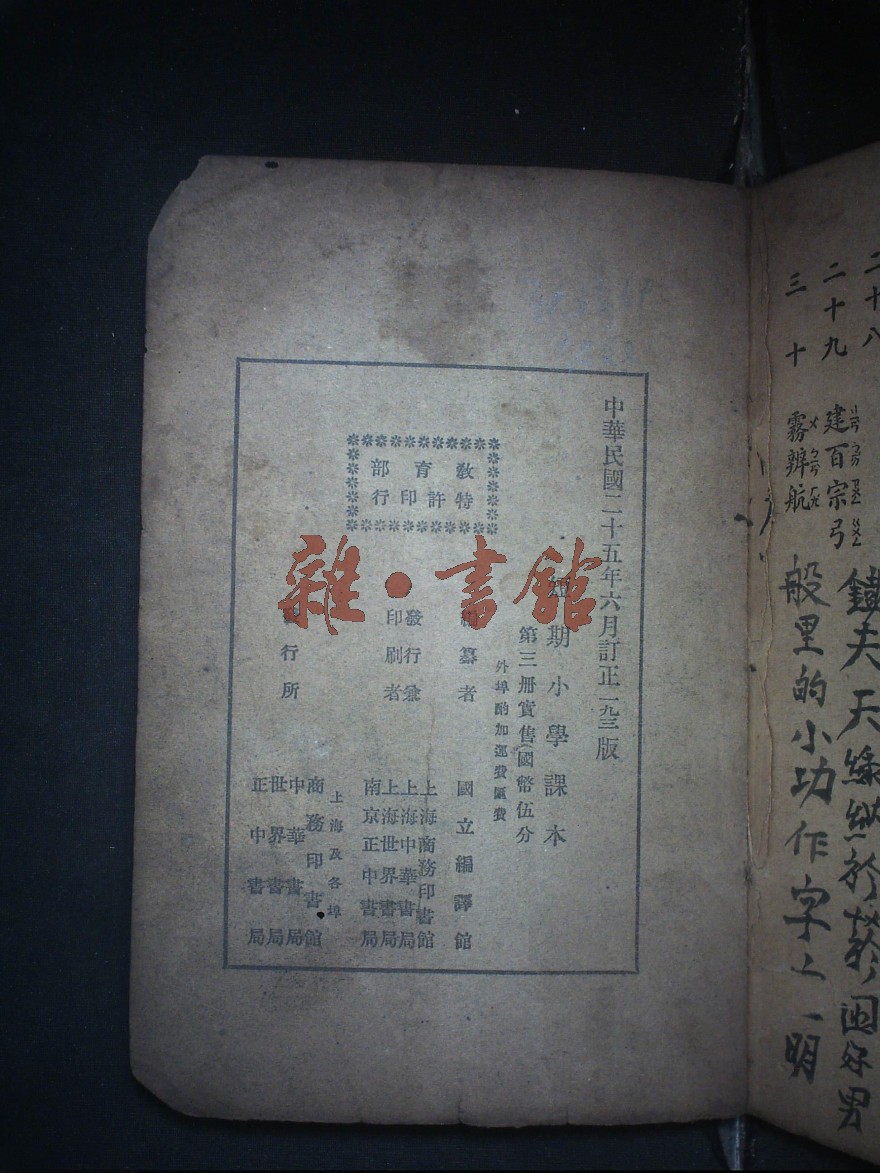 二十八
二十九 建百宗弓
三十 霧辨航
鐵夫天緣
般里的小功作字
明
中華民國二十五年六月訂正一九三版
短期小學課本
第三册實售(國幣伍分
外埠酌加運費匯費
教育部
特許印行
編纂者 國立編譯館
發行兼印刷者
上海商務印書館
上海中華書局
上海世界書局
南京正中書局
發行所
上海及各埠
商務印書館
中華書局
世界書局
正中書局
雜·書館